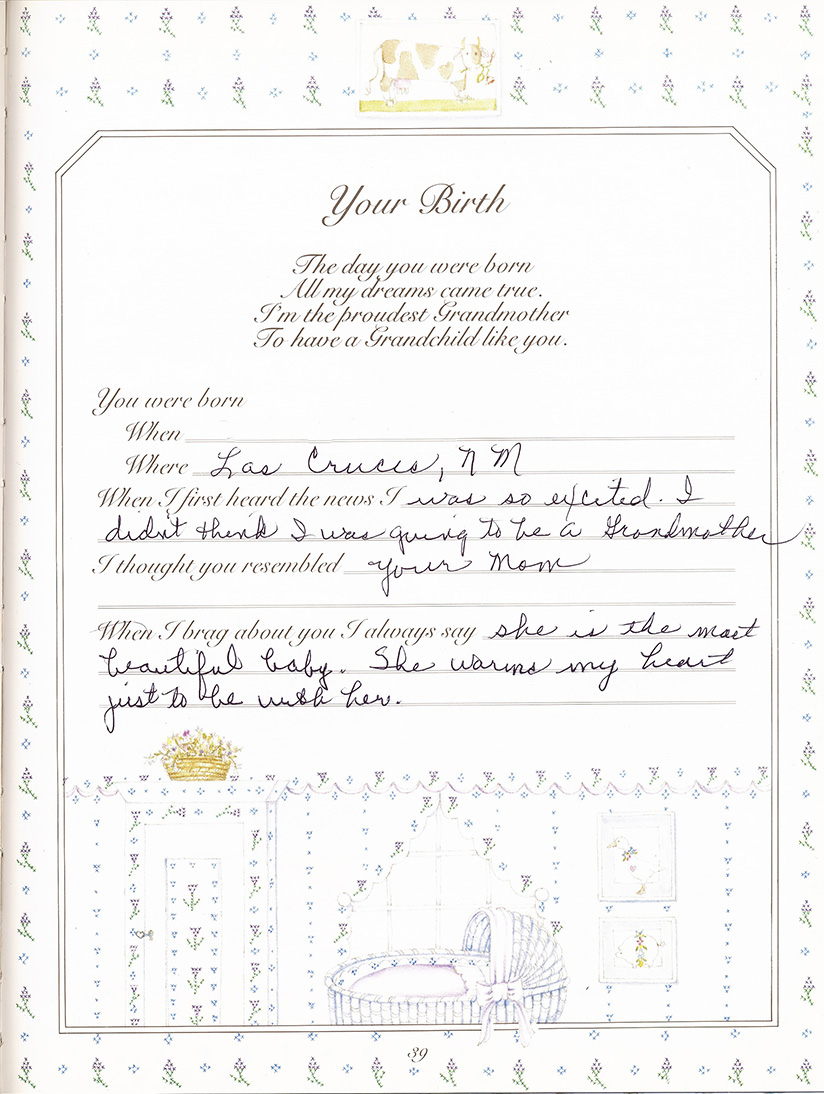 Your Birth
The day you were born
All my dreams came true.
I'm the proudest Grandmother
To have a Grandchild like you.
You were born
When
Where Las Cruces, NM
When I first heard the news I was so excited. I
didn't think I was going to be a Grandmother
I thought you resembled your Mom
When I brag about you I always say she is the most
beautiful baby. She warms my heart
just to be with her.
39